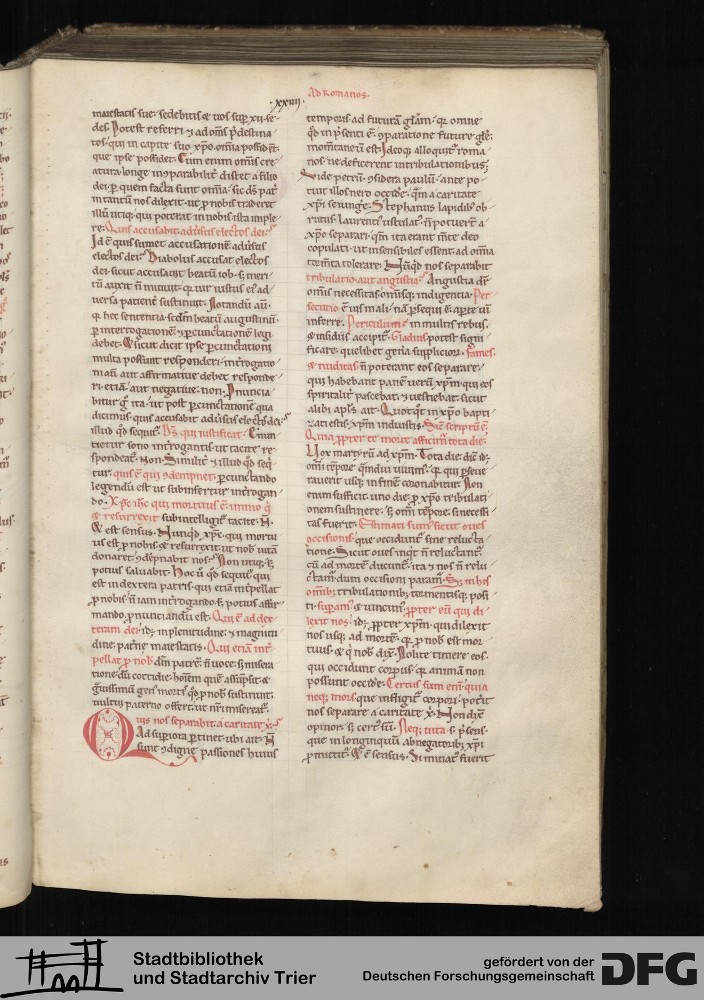 Ad Romanos.
.xxiiii.
maiestatis sue. sedebitis & uos sup xii. se-
des. Potest referri & ad om̄s p̄destina
tos. qui in capite suo xpo om̄ia possidēt
que ipse possidet. Cum enim om̄is cre-
atura longe inꝯparabilit̄ distet a filio
dei. p̱ quem facta sunt om̄ia. sic d̄s pat̄
in tantū nos dilexit. ut p̱ nobis traderet
illū utiq;. qui poterat in nobis ista imple
re. Quis accusabit aduersus electos dei.
Id ē quis sumet accusationē aduersus
electos dei? Diabolus accusat electos
dei. sicut accusauit beatū iob. s; meri-
tū auxit n̄ minuit. q̄ uir iustus eł ad-
uersa patienẗ sustinuit. Notandū aū.
q̄ hec sententia sc̄dm beatū augustinū.
p̱ interrogationē & p̱cunctationē legi
debet. Et sicut dicit ipse p̱cunctationi
multa possunt responderi. int̄rogatio
ni aū aut affirmatiue debet responde-
ri. etiā aut negatiue. non. Pnuncia
bitur g̊ ita. ut post p̱cunctationē qua
dicimus. quis accusabit aduersus electos dei.
illud qd sequit̄. D̄s qui iustificat. Enun
tietur sono int̄rogantis. ut tacite re-
spondeat̄. Non. Similit̄ & illud qd seq̄
tur. quis ē qui ꝯdempnet. p̱cunctando
legendū est. ut subinfertur int̄rogan
do. Xp̄c ih̄c qui mortuus ē. immo q̄
& resurrexit. subintelligit̄ tacite. N̄.
Et est sensus. Nunqd xp̄c. qui mortu
us est p̱ nobis & resurrexit. ut nob uitā
donaret. ꝯdēpnabit nos? Non utiq;. s;
potius saluabit. Hoc ū qd sequit̄. qui
est in dextera patris. qui etiā int̄pellat
p̱ nobis. n̄ iam int̄rogando. s; potius affir
mando p̱nuntiandū est. Qui ē ad dex-
teram dei. id; in plenitudine. & magnitu
dine. pat̄ne maiestatis. Qui etiā int̄
pellat p̱ nob. dm̄ patrē. n̄ uoce. s; misera
tione. dū cottidie. hoīem quē assūpsit. &
g̊uissimū gen̄ mortis qd p̱ nob sustinuit.
uultui paterno offert. ut nr̄i misereat̄.
Quis nos separabit a caritate x̄.
Ad supiora p̱tinet. ubi ait. N̄
sunt ꝯdigne passiones huius
temporis ad futurā gl̄am. q̄ omne
qd in p̄senti ē. ꝯparatione future gl̄e.
momētaneū est. Ideoq; alloquit̄ roma
nos. ne deficerent in tribulationibus.
Vide petrū. ꝯsidera paulū. ante po
tuit illos nero occide. q̄m a caritate
xp̄i seiunge. Stephanus lapidib; ob
rutus. laurenti ustulat̄. n̄ potuert̄ a
xpo separari. q̄m ita erant m̄te deo
copulati. ut insensibiles essent. ad om̄ia
torm̄ta tolerare. Nūqd nos separabit
tribulatio. aut angustia? Angustia dr̄
om̄is necessitas. om̄isq; indigentia. Per
secutio ē. uis mali. nā p̱sequi ē. aptē uī
inferre. Periculum ē in multis rebus.
& insidiis accipit̄. Gladius potest signi
ficare. quelibet gen̄ia suppliciorū. fames.
& nuditas. n̄ poterant eos separare.
qui habebant panē uerū xp̄m. qui eos
spiritualit̄ pascebat. & uestiebat. sicut
alibi apłs ait. Quotq̄t in xpo bapti
zati estis. xp̄m induistis. Sic̄ scriptū ē.
Quia p̱pter te morte afficimur tota die.
Vox martyrū ad xp̄m. Tota die. dic̄. id;
om̄i tēpore. q̄mdiu uiuim̄. q̄ qui p̱seue
rauerit usq; in finē. coronabitur. Non
enim sufficit uno die. p̱ xpo tribulati
onem sustinere. s; om̄i tēpore. si necessi
tas fuerit. Estimati sum̄ sicut oues
occisionis. que occidunt̄ sine relucta
tione. Sicut oues inqt n̄ reluctant̄
cū ad mortē ducunt̄. ita & nos n̄ relu
ctam̄. dum occisioni param̄. S; in his
om̄ib;. tribulationib;. tormentisq; posi
ti. supam̄. & uincim̄. p̱pter eū qui di
lexit nos. id;. p̱pter xp̄m. qui dilexit
nos usq; ad mortē. q̄ p̱ nob est mor
tuus. & q̄ nob dix̄. Nolite timere eos.
qui occidunt corpus. & animā non
possunt occide. Certus sum enī quia
neq; mors. que infligit̄ corpori. pot̄it
nos separare a caritate x̄. Non dix̄
opinor. s; cert̄ sū. Neq; uita. s. p̄sens.
que in longinquū abnegatorib; xp̄i
p̱mittit̄. Et ē sensus. Si minat̄ fuerit
Stadtbibliothek
und Stadtarchiv Trier
gefördert von der
Deutschen Forschungsgemeinschaft
DFG